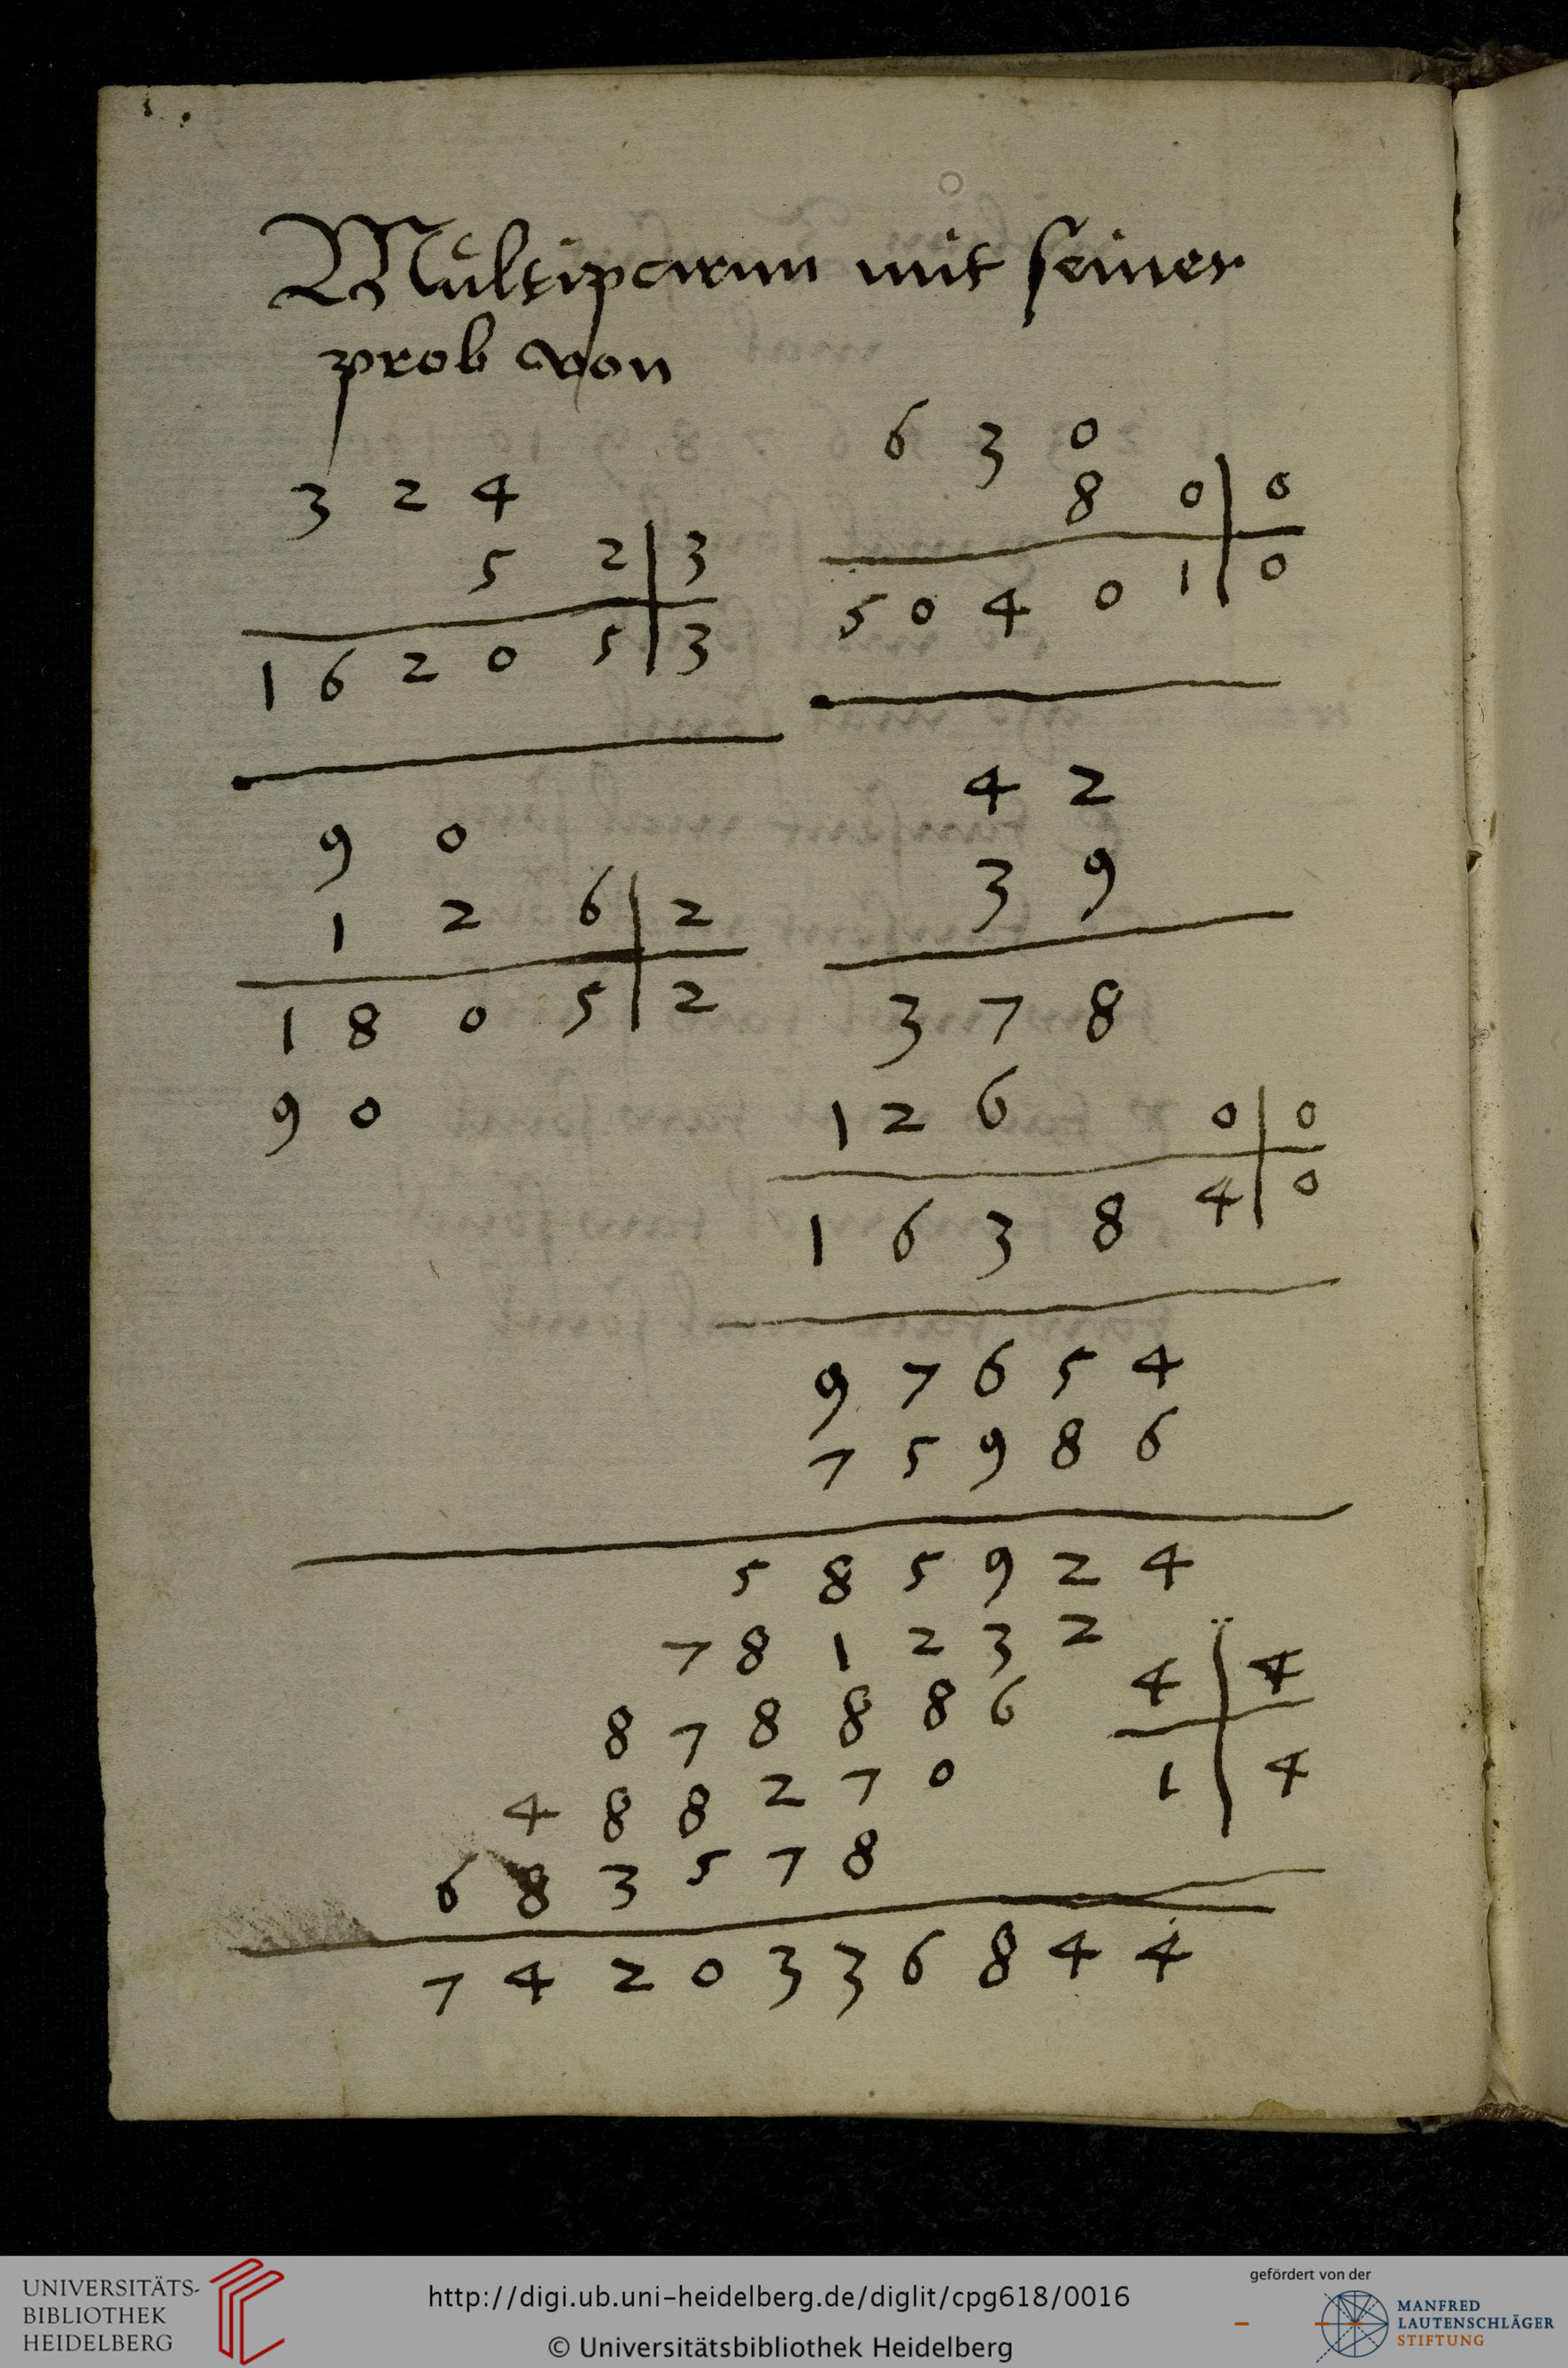 Multiparum mit seiner
prob von
3 2 4
5 2 | 3
1 6 2 0 5 | 3
9 0
1 2 6 | 2
1 8 0 5 | 2
9 0
6 3 0
8 0 | 0
5 0 4 0 1 | 0
4 2
3 9
3 7 8
1 2 6 0 | 0
1 6 3 8 4 | 0
9 7 6 5 4
7 5 9 8 6
5 8 5 9 2 4
7 8 1 2 3 2
8 7 8 8 8 6 4 | 4
4 8 8 2 7 0 1 | 4
6 8 3 5 7 8
7 4 2 0 3 3 6 8 4 4
UNIVERSITÄTS-
BIBLIOTHEK
HEIDELBERG
http://digi.ub.uni-heidelberg.de/diglit/cpg618/0016
© Universitätsbibliothek Heidelberg
gefördert von der
MANFRED
LAUTENSCHLÄGER
STIFTUNG